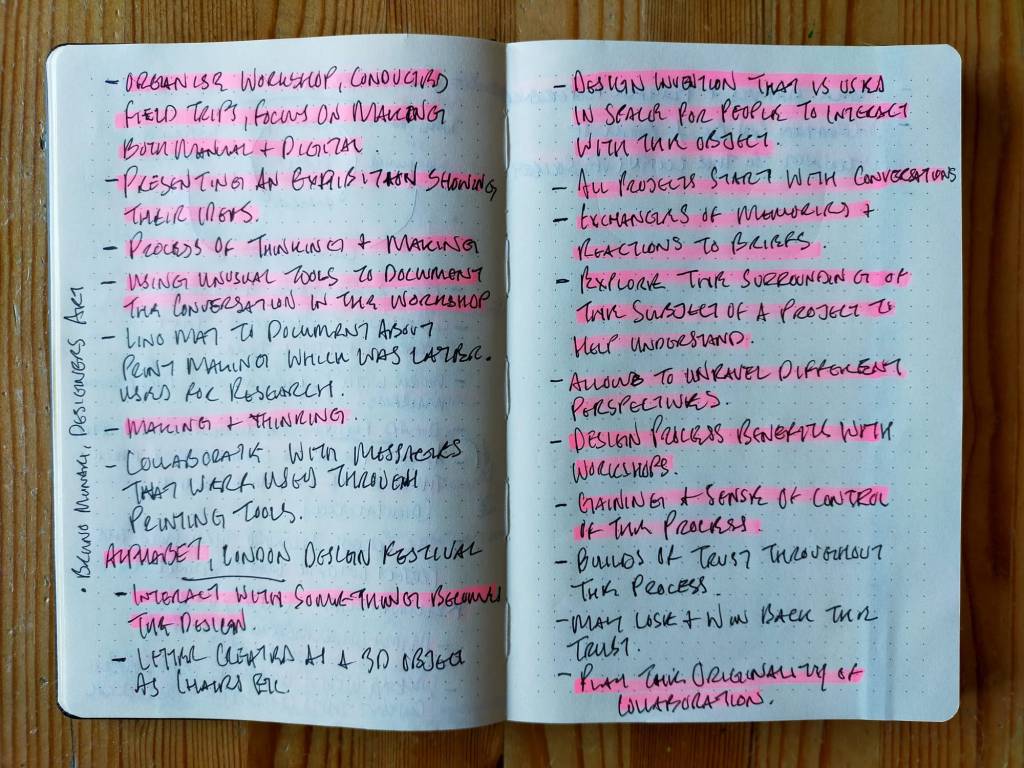 - ORGANISE WORKSHOP, CONDUCTED
FIELD TRIPS, FOCUS ON MAKING
BOTH MANUAL + DIGITAL
- PRESENTING AN EXHIBITION SHOWING
THEIR IDEAS.
- PROCESS OF THINKING + MAKING
- USING UNUSUAL TOOLS TO DOCUMENT
THE CONVERSATION IN THE WORKSHOP
- LINO MAT TO DOCUMENT ABOUT
PRINT MAKING WHICH WAS LATER.
USED FOR RESEARCH.
- MAKING + THINKING.
- COLLABORATE WITH MESSAGES
THAT WERE USED THROUGH
PRINTING TOOLS.
ALPHABET, LONDON DESIGN FESTIVAL
- INTERACT WITH SOMETHING BECOMES
THE DESIGN.
- LETTER CREATED AS A 3D OBJECT
AS CHAIRS ETC.
• BRUNO MUNARI, DESIGNERS ART
- DESIGN INVENTION THAT IS USED
IN SEALER FOR PEOPLE TO INTERACT
WITH THE OBJECT
- ALL PROJECTS START WITH CONVERSATIONS
- EXCHANGERS OF MEMORIES +
REACTIONS TO BRIEFS.
- EXPLORE THE SURROUNDING OF
THE SUBJECT OF A PROJECT TO
HELP UNDERSTAND.
- ALLOWS TO UNRAVEL DIFFERENT
PERSPECTIVES.
- DESIGN PROCESS BENEFITS WITH
WORKSHOPS.
- GAINING A SENSE OF CONTROL
OF THE PROCESS.
- BUILDS OF TRUST THROUGHOUT
THE PROCESS.
- MAY LOSE + WIN BACK THE
TRUST.
- PLAY THE ORIGINALITY OF
COLLABORATION.